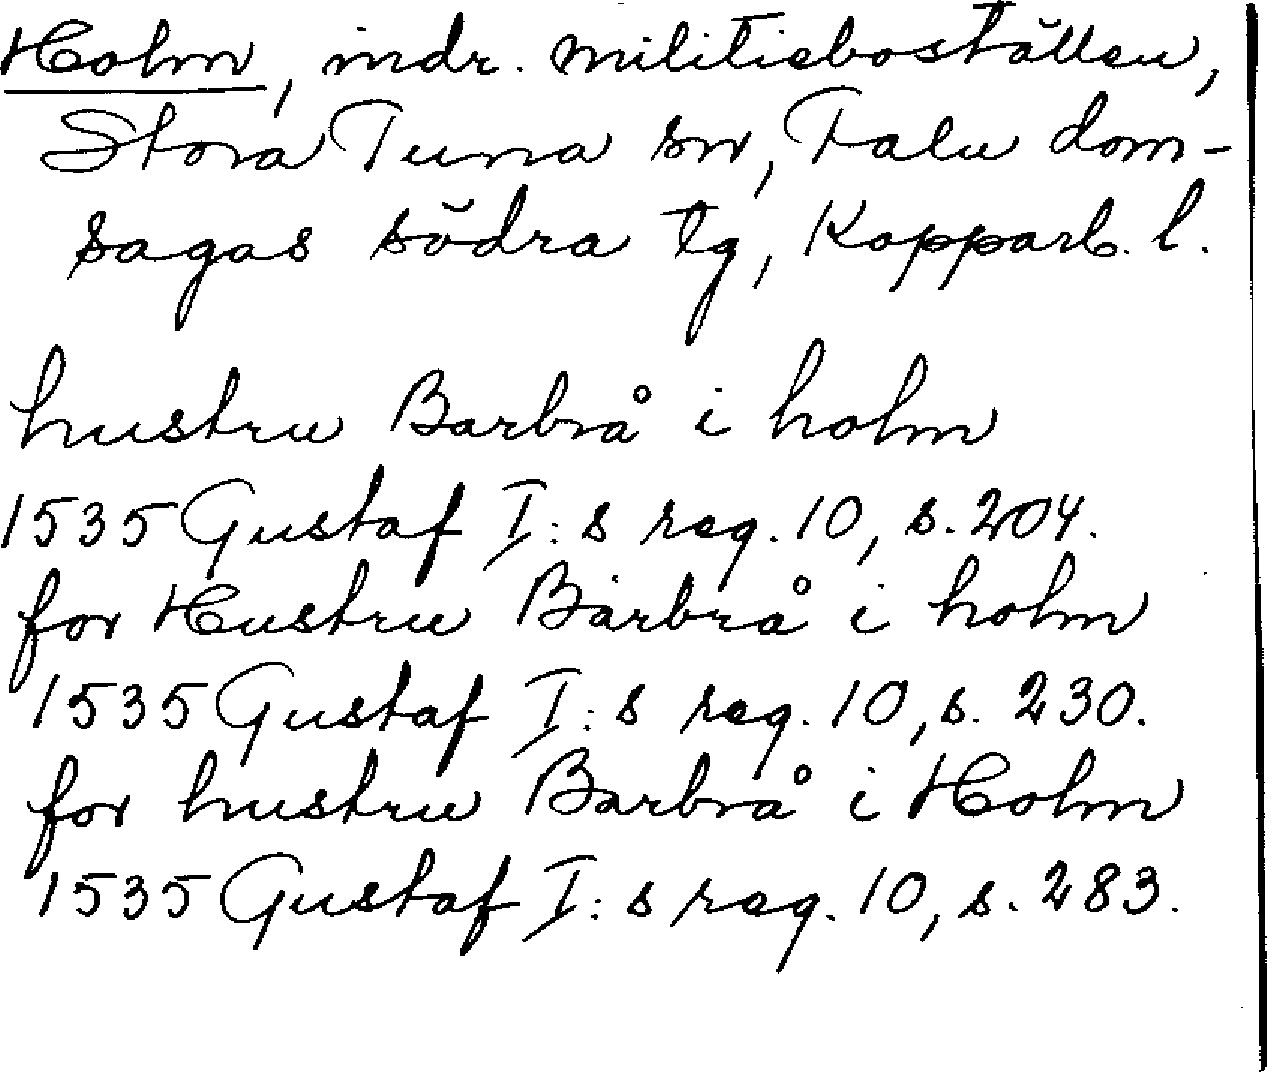 Holm, indr. militieboställen,
Stora Tuna sn, Falu dom-
sagas södra tg, Kopparb. l.
hustru Barbrå i holm
1535 Gustaf I:s reg. 10, s. 204.
for Hustru Barbrå i holm
1535 Gustaf I:s reg. 10, s. 230.
for hustru Barbrå i Holm
1535 Gustaf I:s reg. 10, s. 283.